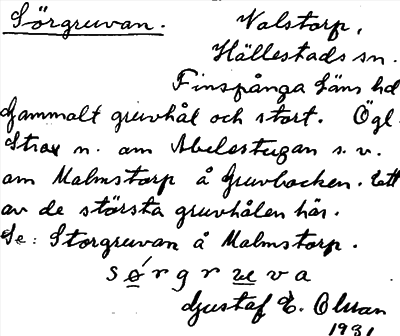 Sörgruvan. Valstorp,
Hällestads sn.
Finspånga läns hd
Gammalt gruvhål och stort. Ögl.
Strax n. om Abelstugan s. v.
om Malmstorp å Gruvbacken. Ett
av de största gruvhålen här.
Se: Storgruvan å Malmstorp.
s ø´ r g r u v a
Gustaf E. Olsson
1931